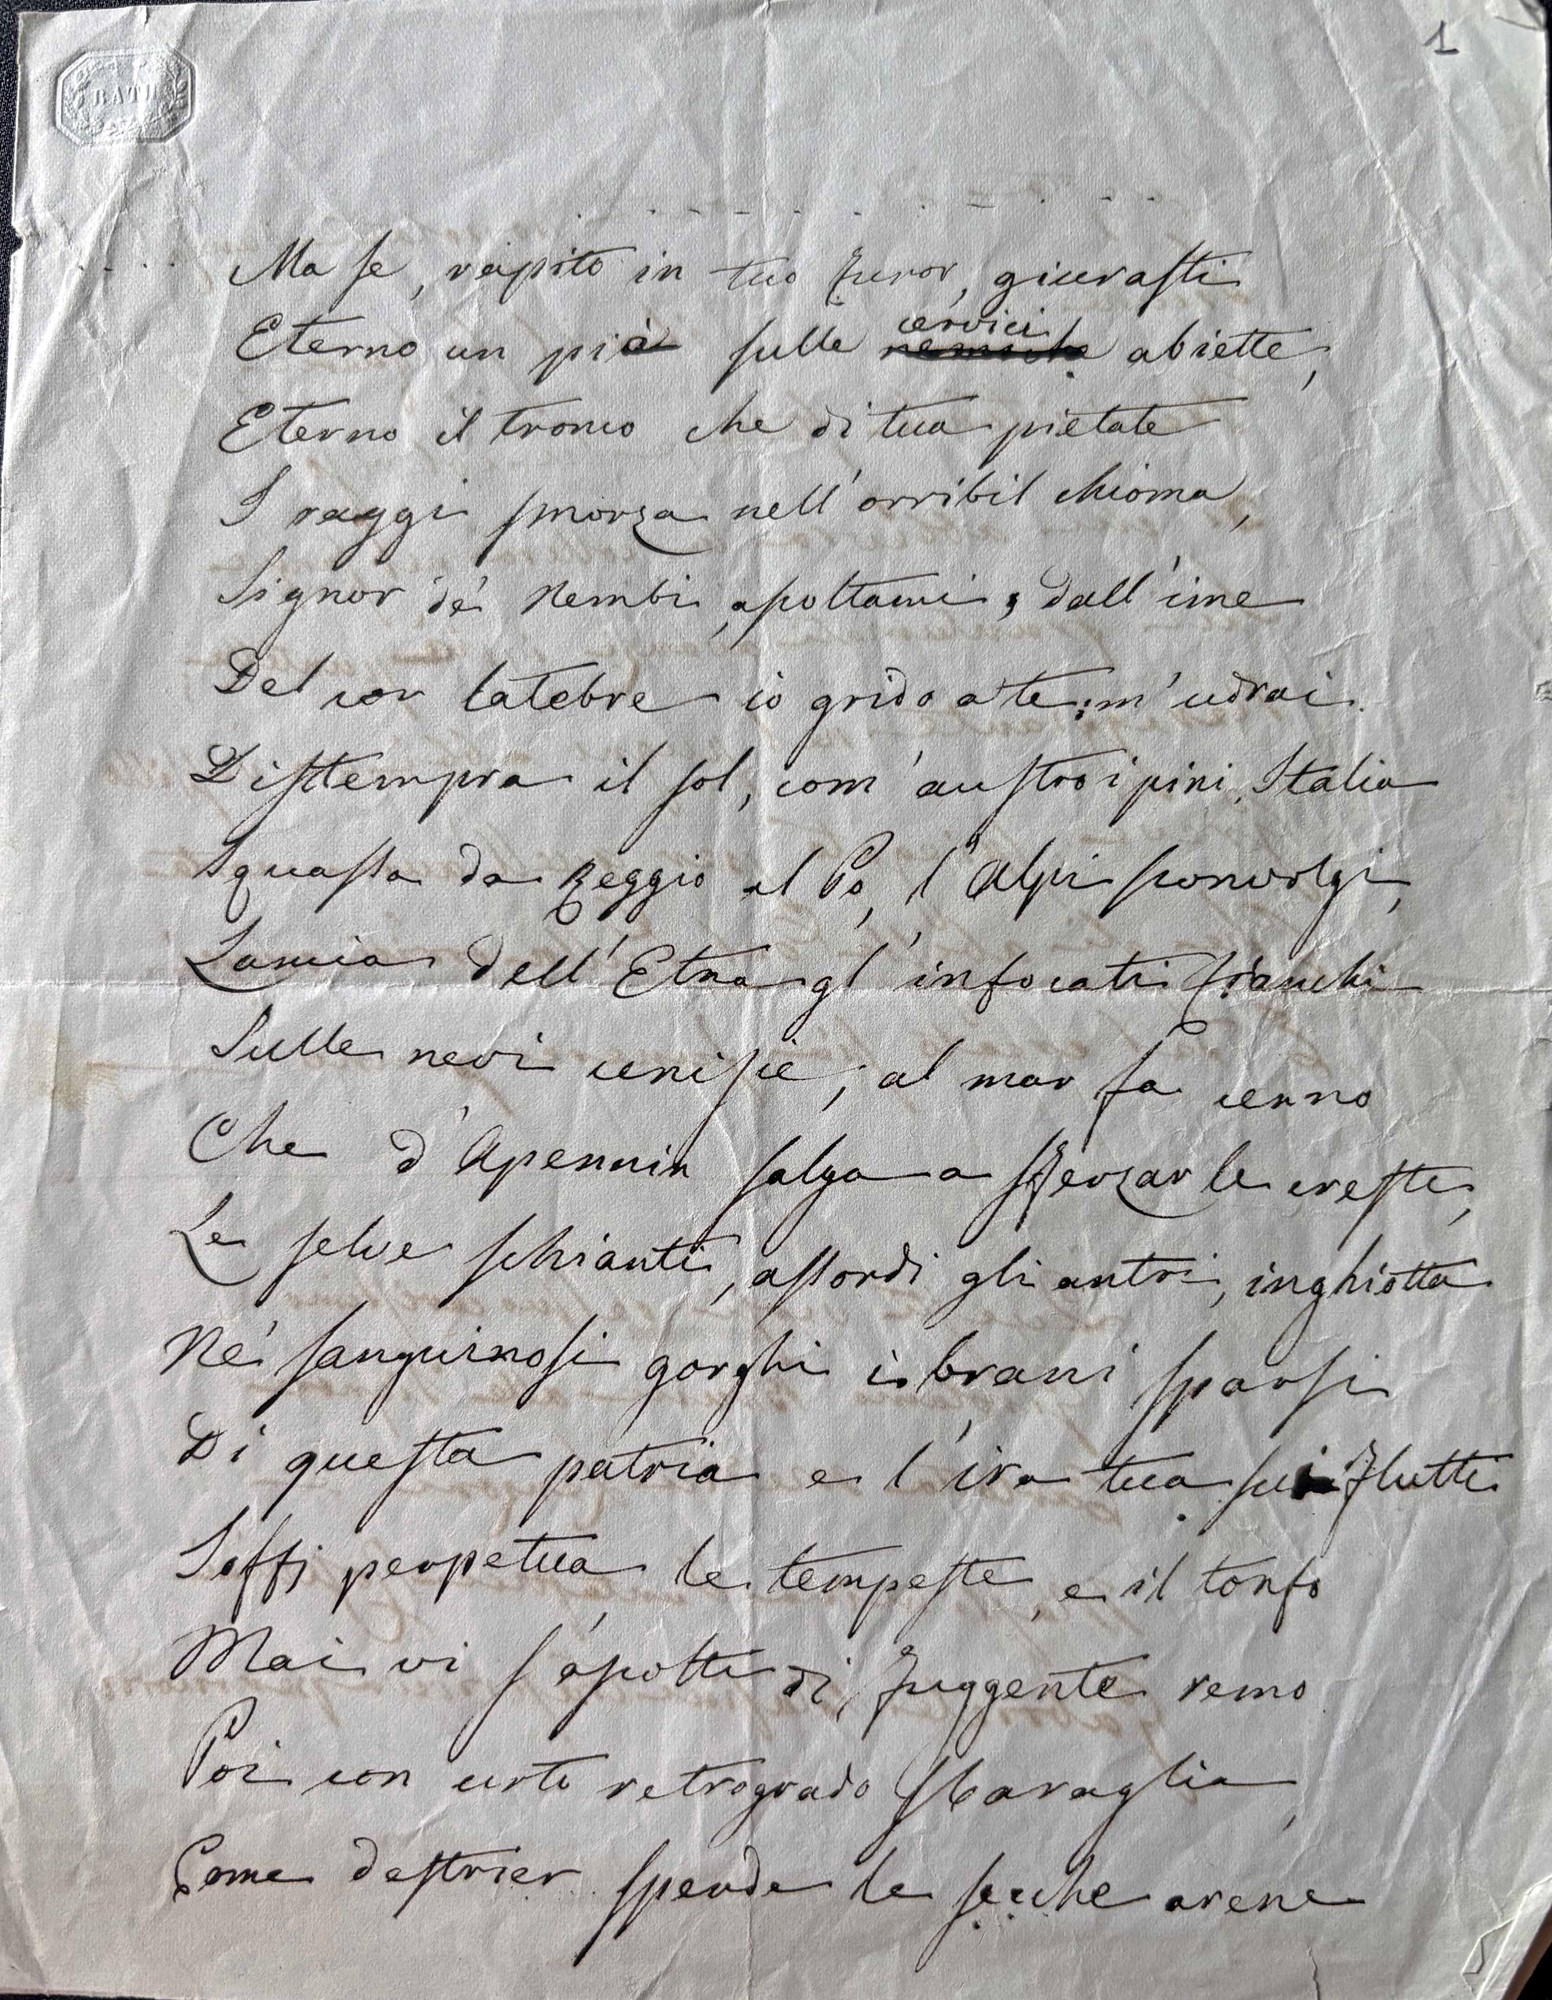 BATH
1
Ma se, rapito in tuo furor, giurasti
Eterno un piè sulle cervici abiette,
Eterno il tronco che di tua pietate
I raggi smorza nell'orribil chioma,
Signor de' Nembi, ascoltami; dall'ime
Del cor latebre io grido a te: m'udrai.
Distempra il sol, com'austro i pini, Italia
Squassa da Reggio al Po, l'Alpi sconvolgi,
Lancia dell'Etna gl'infocati fianchi
Sulle nevi cenisie; al mar fa cenno
Che d'Apennin salga a sferzar le creste,
Le selve schianti, assordi gli antri, inghiotta
Ne' sanguinosi gorghi i brani sparsi
Di questa patria e l'ira tua sui flutti
Soffi perpetua le tempeste, e il tonfo
Mai vi s'ascolti di fuggente remo
Poi con urto retrogrado sbaraglia,
Come destrier sperde le secche arene